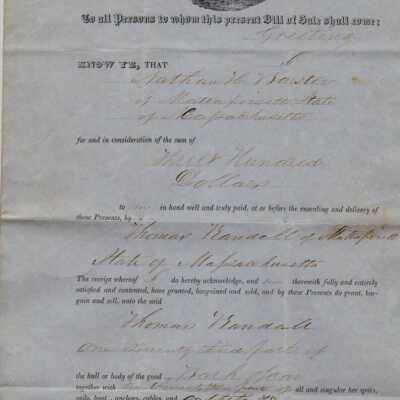 To all Persons to whom this present Bill of Sale shall come:
Greeting
KNOW YE, THAT
Nathan H. Barstow
of Mattapoisett State
of Massachusetts
for and in consideration of the sum of
Three Hundred
Dollars
to me in hand well and truly paid, at or before the ensealing and delivery of
these Presents, by
Thomas Randall of Mattapoisett
State of Massachusetts
The receipt whereof I do hereby acknowledge, and am therewith fully and entirely
satisfied and contented, have granted, bargained and sold, and by these Presents do grant, bar-
gain and sell, unto the said
Thomas Randall
One twenty third part of
the hull or body of the good Bark
together with the part of all and singular her spars,
sails, boat, anchors, cables, and